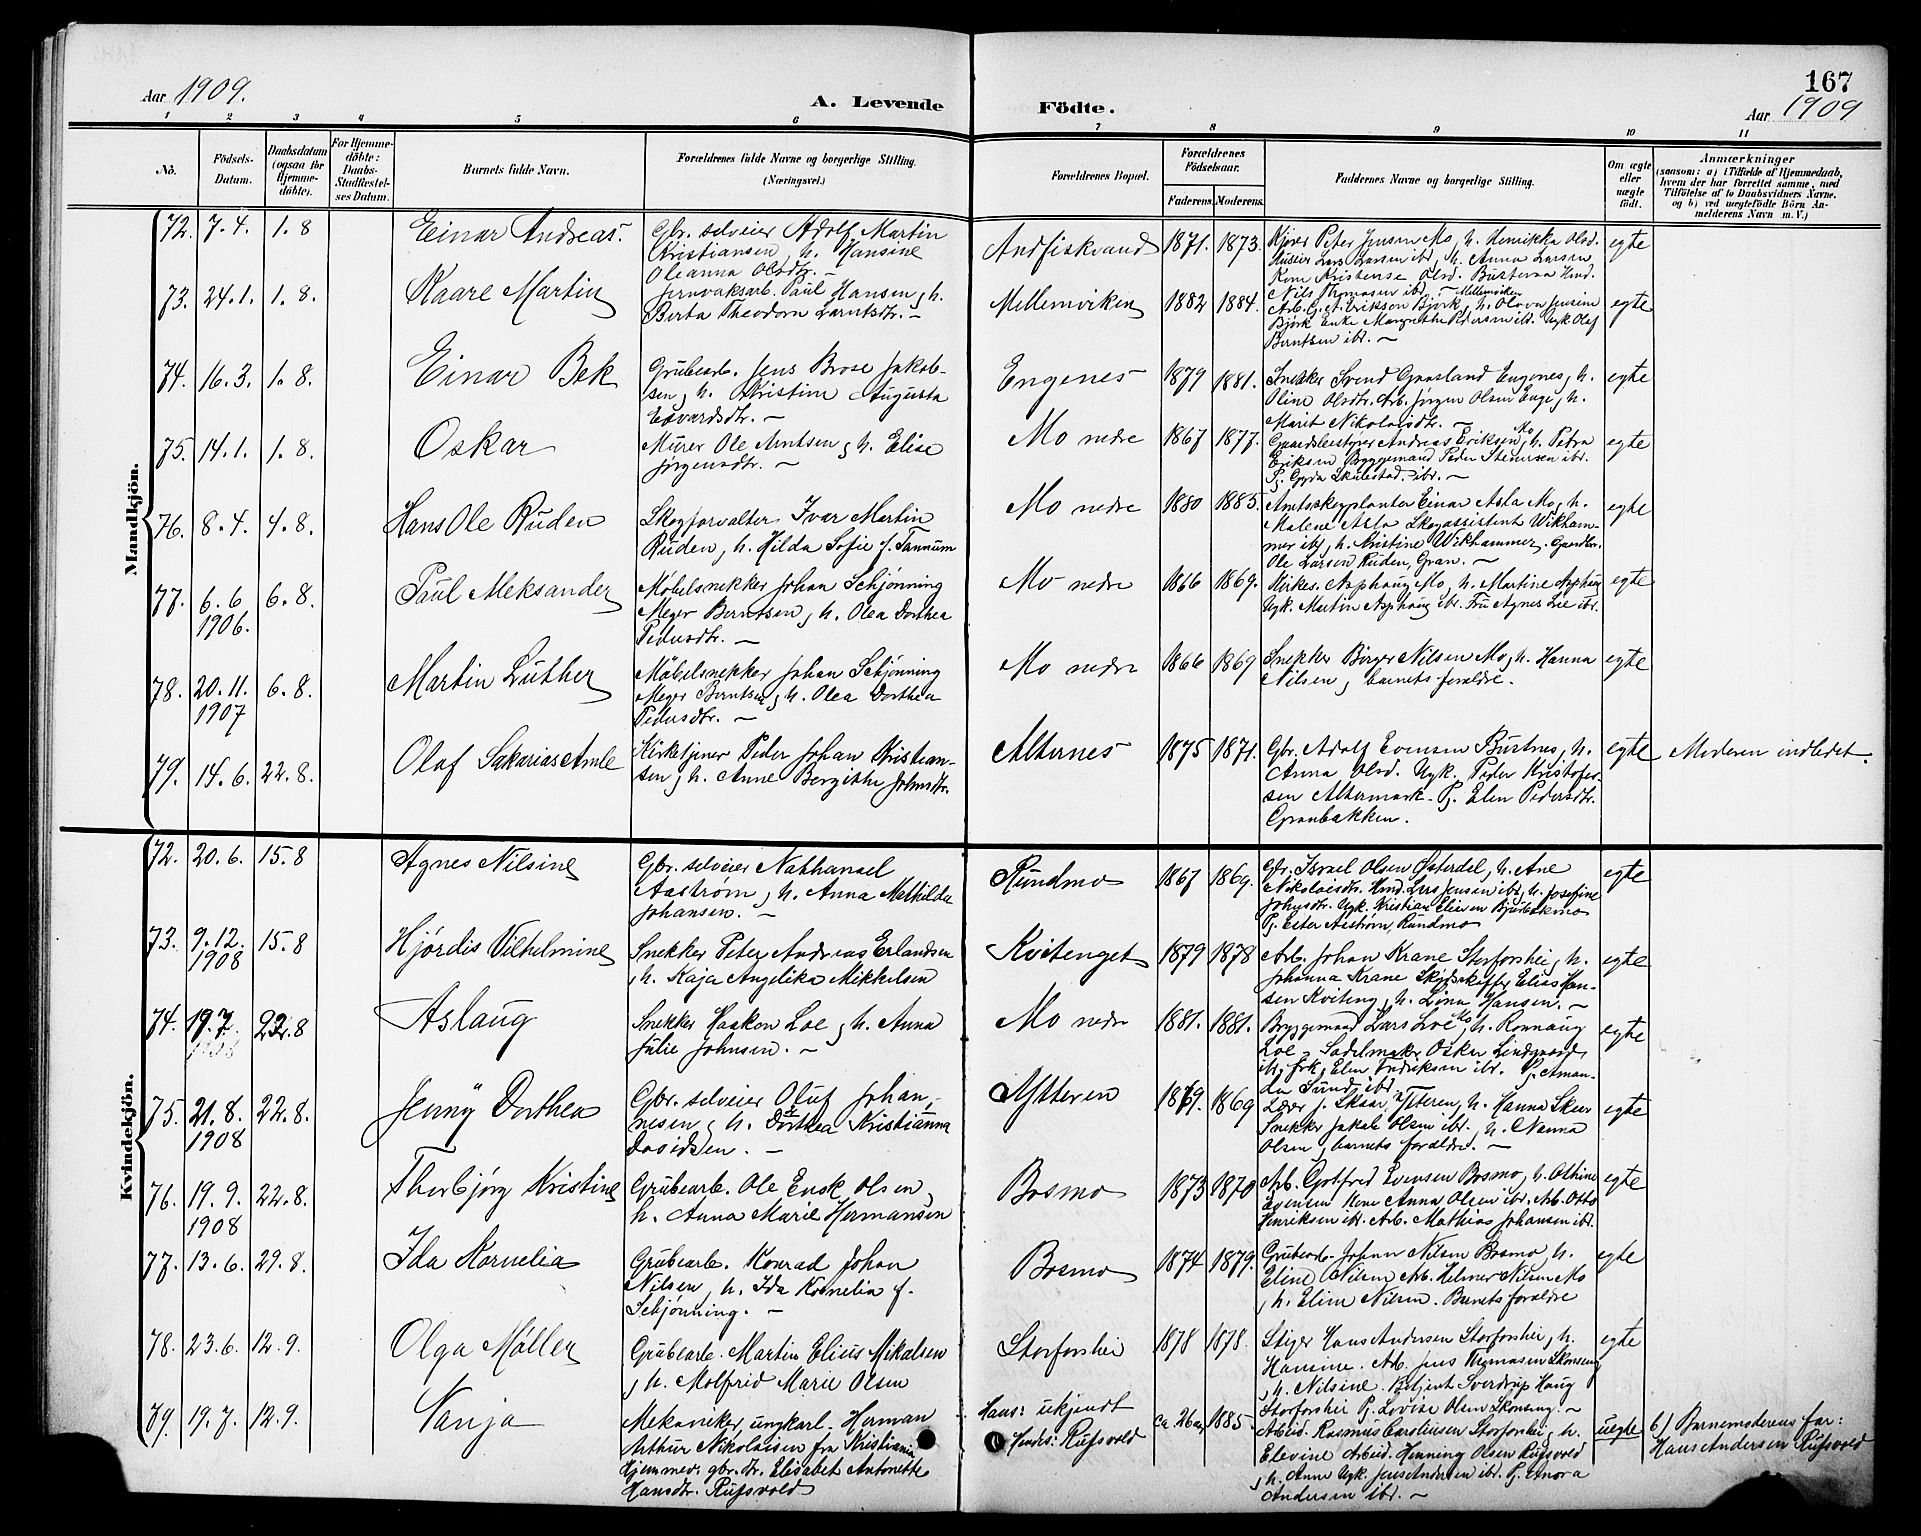 Aar 1909.
A. Levende
Födte.
167
Aar 1909
1 2 3 4 5 6 7 8 9 10 11
No.
Födsels-Datum.
Daabsdatum (ogsaa for Hjemmedöbte).
For Hjemmedöbte: Daabs-Stadfæstelses Datum.
Barnets fulde Navn.
Forældrenes fulde Navne og borgerlige Stilling. (Næringsvei.)
Forældrenes Bopæl.
Forældrenes Födselsaar.
Faderens. Moderens.
Faddernes Navne og borgerlige Stilling.
Om ægte eller uægte födt.
Anmærkninger
(saasom: a) i Tilfælde af Hjemmedaab,
hvem der har forrettet samme, med
Tilföielse af to Daabsvidners Navne,
og b) ved uægtefödte Börn An-
melderens Navn m. V.)
Mandkjön.
72. 7.4. 1.8 Einar Andreas.
Gbr. selveier Adolf Martin
Kristiansen, h. Hansine
Oleanna Olsdtr. —
Andfiskvand 1871. 1873.
Kjører Peter Jensen Mo, h. Henrikka Olsd.
Huseier Lars Larsen ibd, h. Anna Larsen
Kone Kristense Olsd.
Nils Thomasen ibd. —
egte
73. 24.1. 1.8. Kaare Martin
Jernvaksarb. Paul Hansen, h.
Berta Theodora Larntsdtr. —
Mellemviken 1882 1884.
Mellemviken
Arb. G. A. Erikson Bjørk, h. Olava Jensine
Bjørk Enke Margrethe Pedersen ibd. Ugk. Olaf
Berntsen ibr. —
egte
74. 16.3. 1.8. Einar Bek
Grubearb. Jens Brose Jakob-
sen, h. Kristine Augusta
Edvardsdtr. —
Engenes 1879 1881.
Snekker Svend Graasland Engenes, h.
Oline Olsdtr. Arb. Jørgen Olsen Enge, h.
Marit Nikolaisdtr. —
egte
75. 14.1. 1.8. Oskar
Murer Ole Arntsen, h. Elise
Jørgensdtr. —
Mo nedre 1867 1877.
Gaardsbestyrer Andreas Eriksen Mo, h. Petra
Eriksen Byggemand Peder Stenersen ibr.
Pg. Gyda Skulestad. ibr. —
egte
76. 8.4. 4.8. Hans Ole Ruden
Skogforvalter Ivar Martin
Ruden, h. Hilda Sofie f. Tannum
Mo nedre 1880 1885.
Amtsskogplanter Einar Asla Mo, h.
Malene Asla Skogassistent Wikham-
mer ibd, h. Kristine Wikhammer. Gaardbr.
Ole Larsen Ruden, Gran. —
egte
77. 6.6 1906. 6.8. Paul Aleksander
Møbelsnekker Johan Schjønning
Meyer Berntsen, h. Olea Dorthea
Pedersdtr. —
Mo nedre 1866 1869.
Kirkes. Asphaug Mo, h. Martine Asphaug
Ugk. Martin Asphaug ibr. Fru Agnes Lie ibr.
egte
78. 20.11. 1907 6.8. Martin Luther
Møbelsnekker Johan Schjønning
Meyer Berntsen, h. Olea Dorthea
Pedersdtr. —
Mo nedre 1866 1869
Snekker Birger Nilsen Mo, h. Hanna
Nilsen, barnets forældre.
egte
79. 14.6. 22.8. Olaf Sakarias Amle
Kirketjener Peder Johan Kristian-
sen, h. Anne Bergitte Johnsdtr.
Alternes 1875 1871.
Gbr. Adolf Evensen Bustnes, h.
Anna Olsd. Ugk. Peder Kristofer-
sen Altermark. Pg. Elen Pedersdtr.
Granbakken.
egte
Moderen indledet.
Kvindekjön.
72. 20.6. 15.8 Agnes Nilsine
Gbr. selveier Nathanael
Aastrøm, h. Anna Mathilda
Johansen. —
Rundmo 1867 1869.
Gbr. Israel Olsen Østerdel, h. Ane
Nikolaisdtr. Hmd. Lars Jensen ibd, h. Josefine
Johnsdtr. Ugk. Kristian Elisen Bjørbekmo
Pg. Ester Aastrøm, Rundmo
egte
73. 9.12. 1908 15.8 Hjørdis Vilhelmine
Snekker Peter Andreas Erlandsen
, h. Kaja Angelika Mikkelsen
Kvitenget 1879 1878
Arb. Johan Krane Storforshei, h.
Johanna Krane Skydsskaffer Elias Han-
sen Kviteng, h. Lina Hansen. —
egte
74. 19.7. 1908 22.8 Aslaug
Snekker Haakon Loe, h. Anna
Julie Johnsen. —
Mo nedre 1881. 1881.
Bryggemand Lars Loe Mo, h. Rønnaug
Loe, Sadelmaker Oskar Lindgaard
ib, frk. Elen Fredriksen ibr. Pg. Aman-
da Sund ibd.
egte
75. 21.8. 1908 22.8. Jenny Dorthea
Gbr. selveier Oluf Johan-
nesen, h. Dorthea Kristianna
Davidsen. —
Ytteren 1869. 1869
Lærer J. Skaar, Ytteren, h. Hanna Skaar
Snekker Jakob Olsen ibd., h. Nanna
Olsen, barnets forældre. —
egte
76. 19.9. 1908 22.8. Thorbjørg Kristine
Grubearb. Ole Ensk Olsen,
h. Anna Marie Hermansen
Bosmo 1873 1870
Arb. Gotfred Evensen Bosmo, h. Othine
Evensen Kone Anna Olsen ibr. Arb. Otto
Henriksen ibr. Arb. Mathias Johansen ibr.
egte
77. 13.6. 29.8. Ida Kornelia
Grubearb. Konrad Johan
Nilsen, h. Ida Kornelia f.
Schjønning. —
Bosmo 1874 1879.
Grubearb. Johan Nilsen Bosmo h.
Eline Nilsen Arb. Helmer Nilsen Mo
, h. Eline Nilsen. Barnets forældre
egte
78. 23.6. 12.9. Olga Møller
Grubearb. Martin Elieus Mikalsen
, h. Molfrid Marie Olsen
Storforshei 1878 1878.
Stiger Hans Andersen Storforshei, h.
Hansine. Arb. Jens Thomasen Skonseng
, h. Nilsine. Betjent Sverdrup Haug
Storforshei Pg. Lovise Olsen Skonseng. —
egte
79. 19.7. 12.9. Vanja
Mekaniker, ungkarl Herman
Arthur Nikolaisen fra Kristiania
Hjemmev. gbr.dtr. Elisabet Antonette
Hansdtr. Rufsvold
Hans: ukjendt
Hendes: Rufsvold
ca. 26 aar 1885.
Arbeid. Rasmus Caroliusen Storforshei, h.
Elevine Arbeid. Henning Olsen Rufsvold
, h. Anne Ugk. Jens Andersen ibr. Pg. Anora
Andersen ibr. —
uegte
b) Barnemoderens far:
Hans Andersen Rufsvold